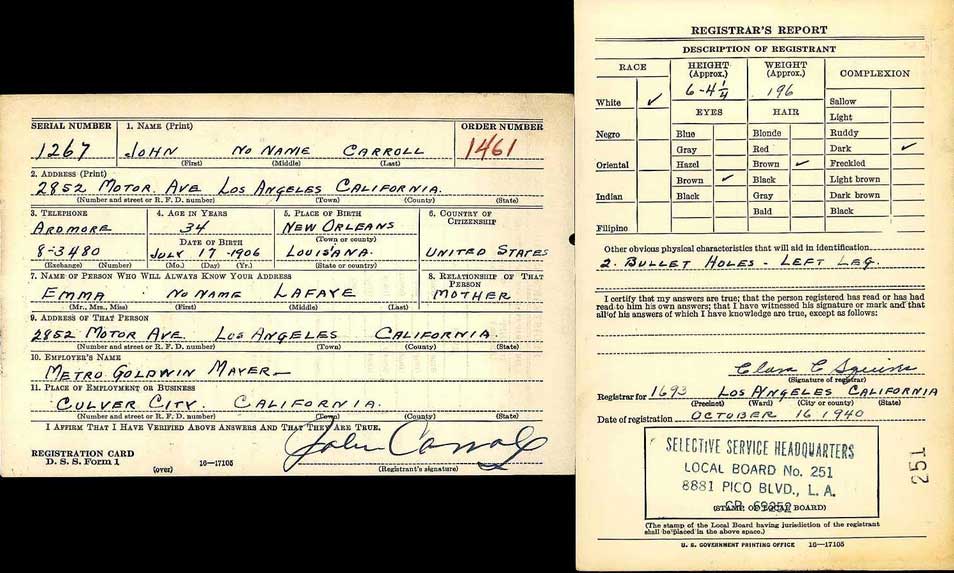 SERIAL NUMBER 1. NAME (Print) ORDER NUMBER
1267 JOHN NO NAME CARROLL 1461
(First) (Middle) (Last)
2. ADDRESS (Print)
2852 MOTOR AVE LOS ANGELES CALIFORNIA.
(Number and street or R. F. D. number) (Town) (County) (State)
3. TELEPHONE 4. AGE IN YEARS 5. PLACE OF BIRTH 6. COUNTRY OF CITIZENSHIP
ARDMORE 34 NEW ORLEANS
DATE OF BIRTH (Town or county)
8-3480 JULY 17-1906 LOUISIANA. UNITED STATES
(Exchange) (Number) (Mo.) (Day) (Yr.) (State or country)
7. NAME OF PERSON WHO WILL ALWAYS KNOW YOUR ADDRESS 8. RELATIONSHIP OF THAT PERSON
EMMA NO NAME LAFAYE MOTHER
(Mr., Mrs., Miss) (First) (Middle) (Last)
9. ADDRESS OF THAT PERSON
2852 MOTOR AVE LOS ANGELES CALIFORNIA
(Number and street or R. F. D. number) (Town) (County) (State)
10. EMPLOYER'S NAME
METRO GOLDWIN MAYER
11. PLACE OF EMPLOYMENT OR BUSINESS
CULVER CITY. CALIFORNIA.
(Number and street or R. F. D. number) (Town) (County) (State)
I AFFIRM THAT I HAVE VERIFIED ABOVE ANSWERS AND THAT THEY ARE TRUE.
John Carroll
REGISTRATION CARD
D. S. S. Form 1 (over) 16—17105 (Registrant's signature)
REGISTRAR'S REPORT
DESCRIPTION OF REGISTRANT
RACE HEIGHT (Approx.) WEIGHT (Approx.) COMPLEXION
6-4¼ 196
White ✓ Sallow
EYES HAIR Light
Negro Blue Blonde Ruddy
Gray Red Dark ✓
Oriental Hazel Brown ✓ Freckled
Brown ✓ Black Light brown
Indian Black Gray Dark brown
Bald Black
Filipino
Other obvious physical characteristics that will aid in identification
2. BULLET HOLES - LEFT LEG.
I certify that my answers are true; that the person registered has read or has had
read to him his own answers; that I have witnessed his signature or mark and that
all of his answers of which I have knowledge are true, except as follows:
Clara C Squires
(Signature of registrar)
Registrar for 1693 LOS ANGELES CALIFORNIA
(Precinct) (Ward) (City or county) (State)
Date of registration OCTOBER 16 1940
SELECTIVE SERVICE HEADQUARTERS
LOCAL BOARD No. 251
8881 PICO BLVD., L. A.
(STAMP OF LOCAL BOARD)
251
(The stamp of the Local Board having jurisdiction of the registrant
shall be placed in the above space.)
U. S. GOVERNMENT PRINTING OFFICE 16—17105